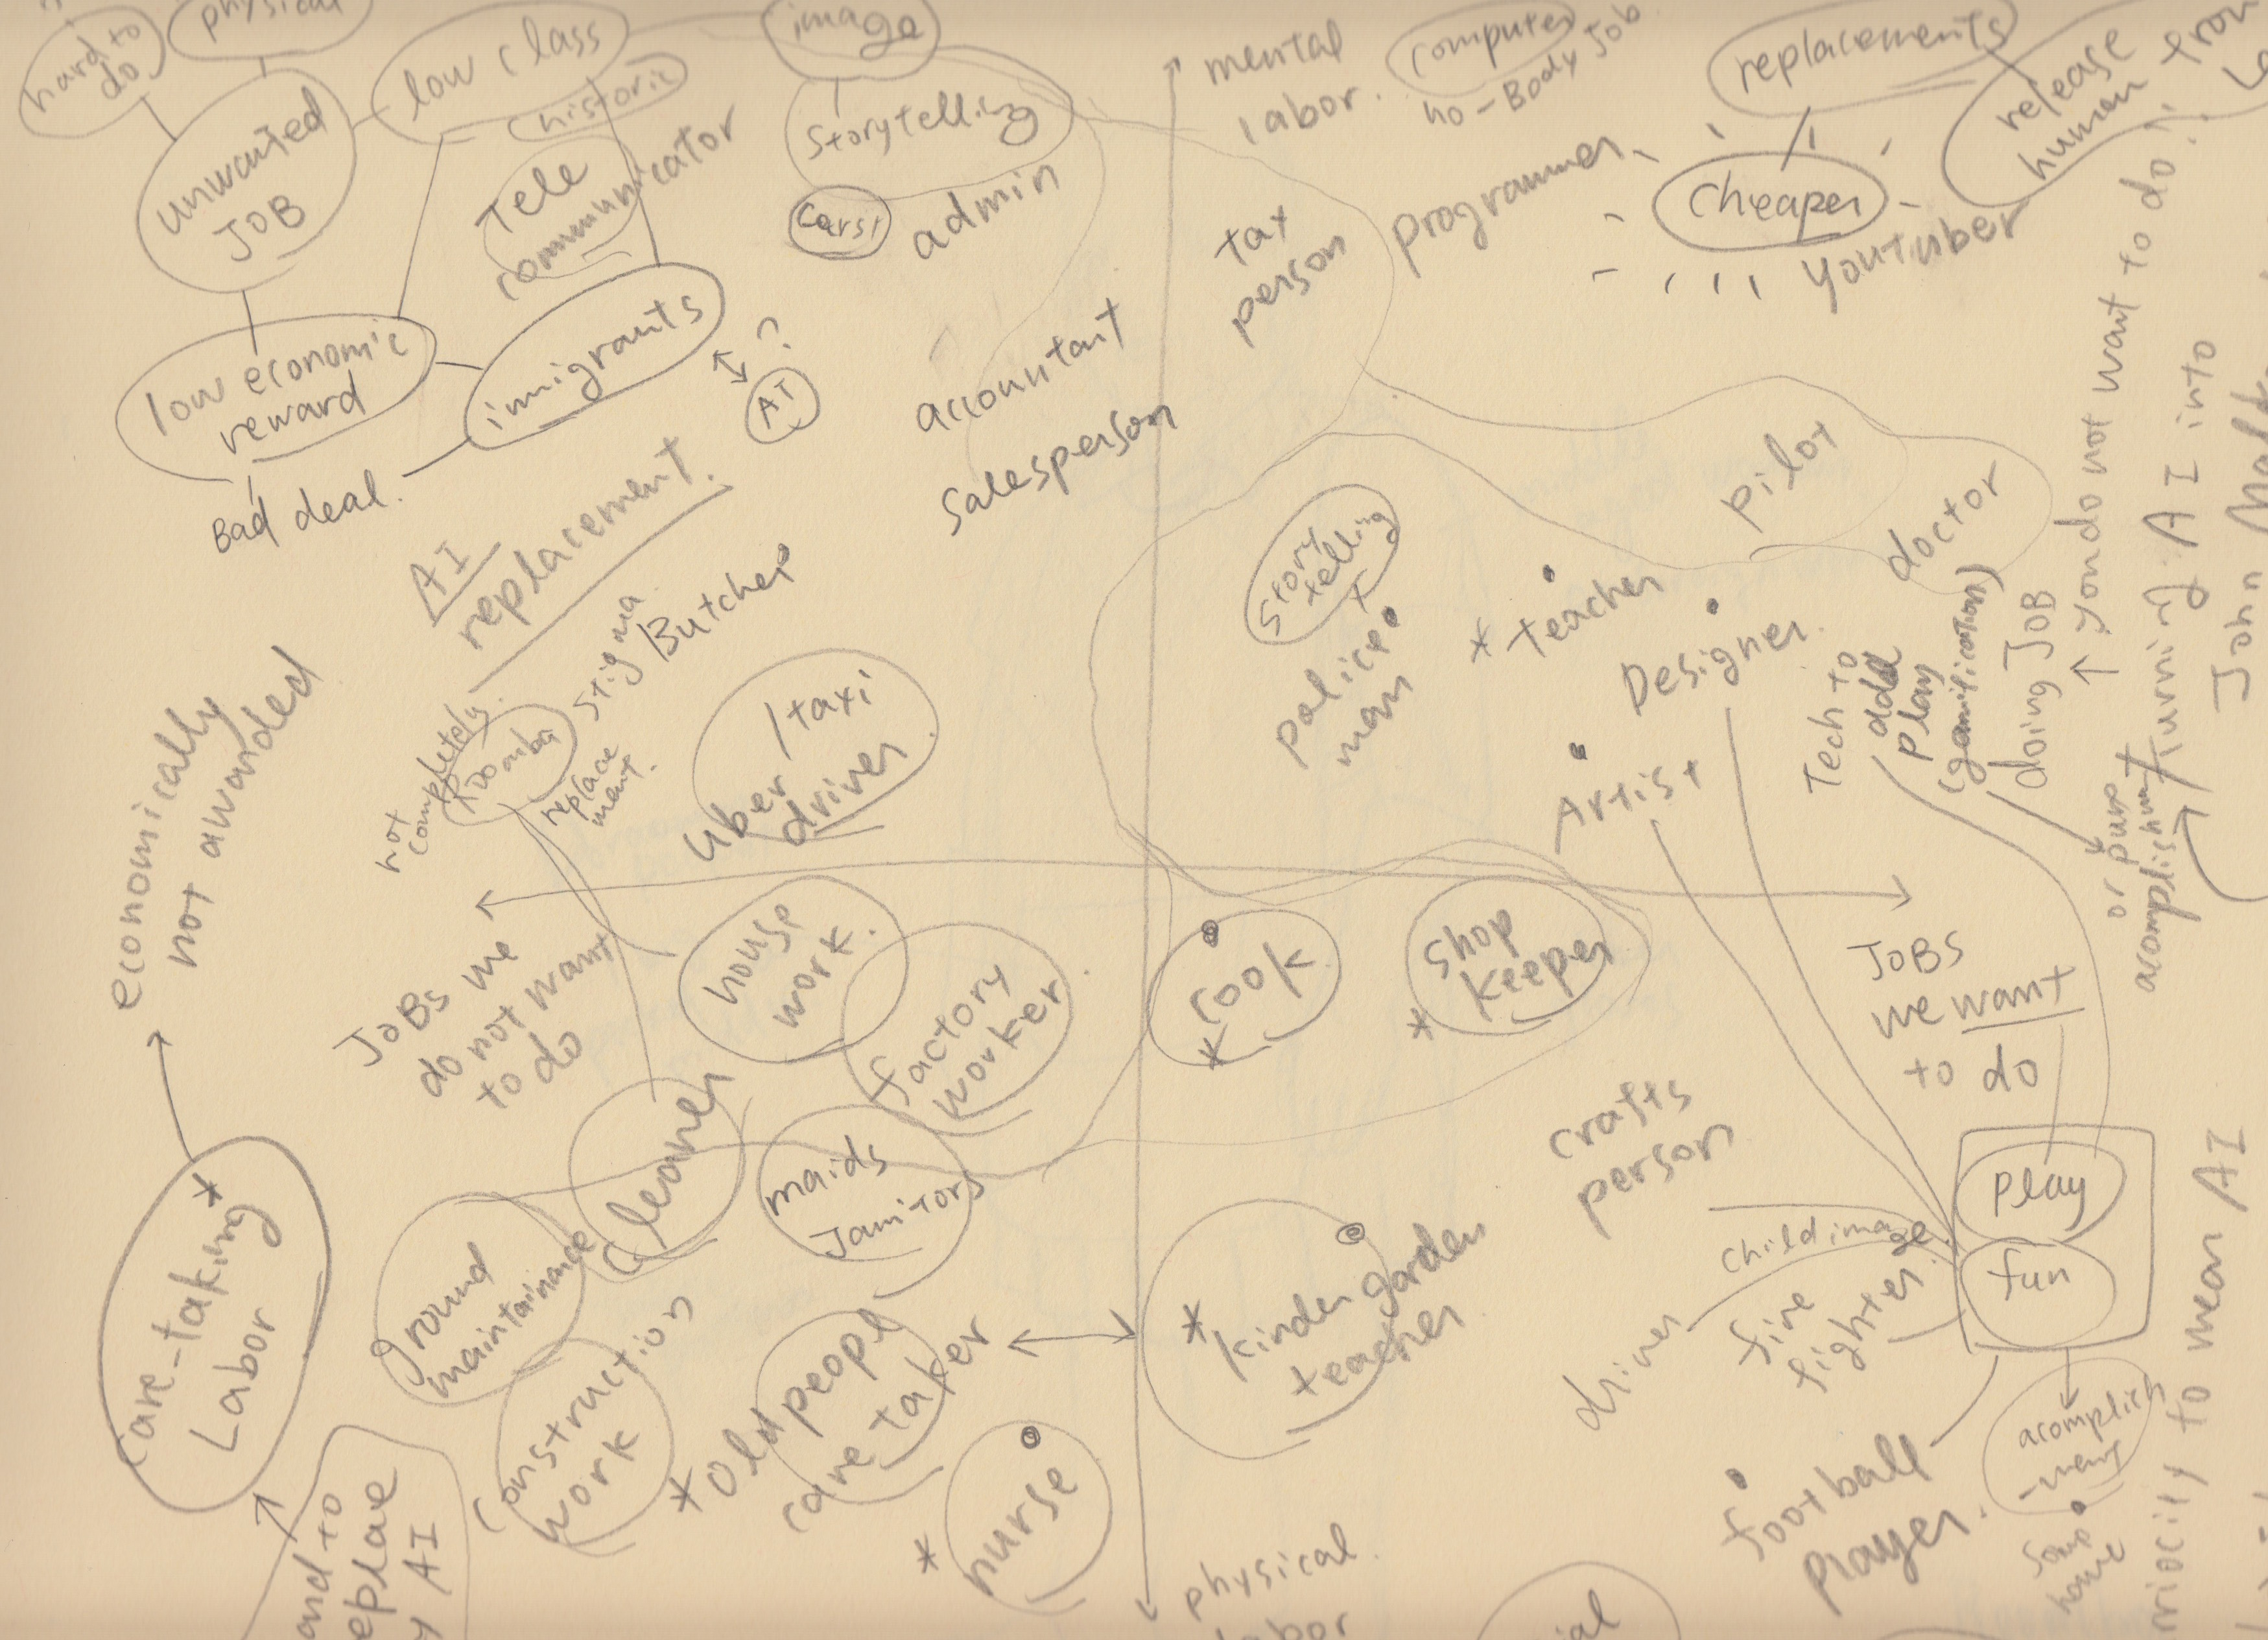 hard to
do
physical
unwanted
JOB
low class
historic
image
Storytelling
Tele
communicator
admin
mental
labor.
computer
no-Body Job
replacements
release
human
from
tax
person
programmer
cheaper
youtuber
low economic
reward
imigrants
?
AI
Bad deal.
accountant
Salesperson
AI
replacement.
stigma
Butcher
pilot
doctor
story
telling
police
man
* teacher
Designer.
Artist
Tech to
add
play
(gamification)
doing JOB
↑ you do not want to do!!
turning AI into
John
or pure
acomplishment
economically
not awarded
not
completely.
roomba
replace
ment.
uber/taxi
driver
JOBS we
do not want
to do
house
work.
factory
worker
* cook
* shop
keeper
JOBS
we want
to do
cleaner
maids
Janitors
crafts
person
play
fun
care-taking *
Labor
ground
maintainance
construction
work
* old people
care taker
* kinder garden
teacher
child image
driver
fire
fighter
acomplish
-ment
* nurse
football
player.
physical.
labor
to mean AI